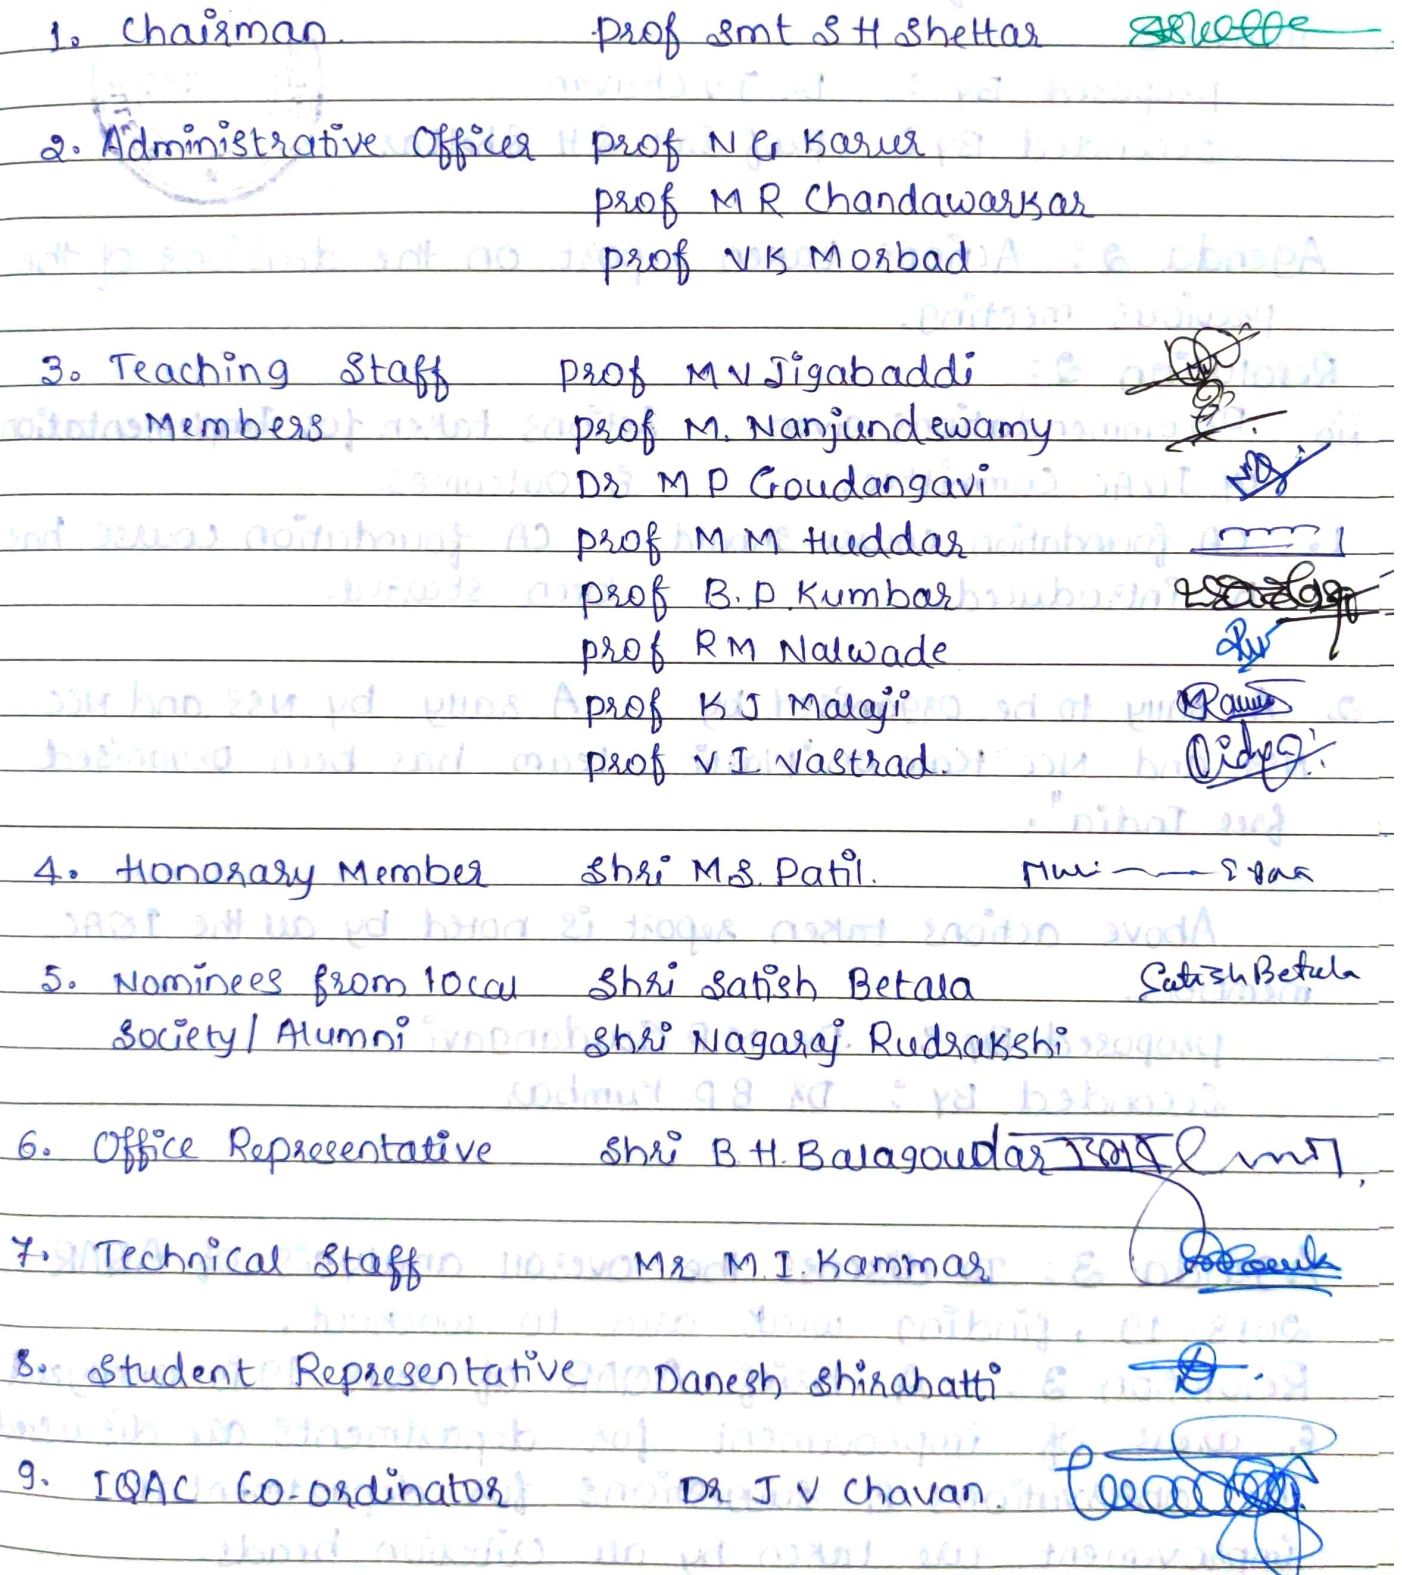 1. Chairman. Prof Smt S H Shettar
2. Administrative Officer Prof N G Karur
Prof M R Chandawarkar
Prof V K Morbad
3. Teaching Staff Prof M V Jigabaddi
Members Prof M. Nanjundswamy
Dr M P Goudangavi
Prof M M Huddar
Prof B.P. Kumbar
Prof R M Nalwade
Prof K J Malaji
Prof V.I. Vastrad.
4. Honorary Member Shri M.S. Patil.
5. Nominees from local Shri Satish Betala Satish Betala
Society/Alumni Shri Nagaraj Rudrakshi
6. Office Representative Shri B.H. Balagoudar
7. Technical Staff Mr M.I. Kammar
8. Student Representative Danesh Shirahatti
9. IQAC Co-ordinator Dr J V Chavan.